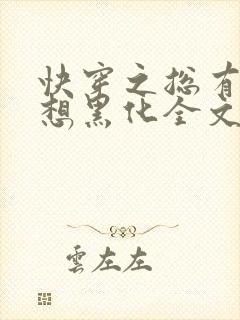 快穿之总有
想黑化全文
雲左左